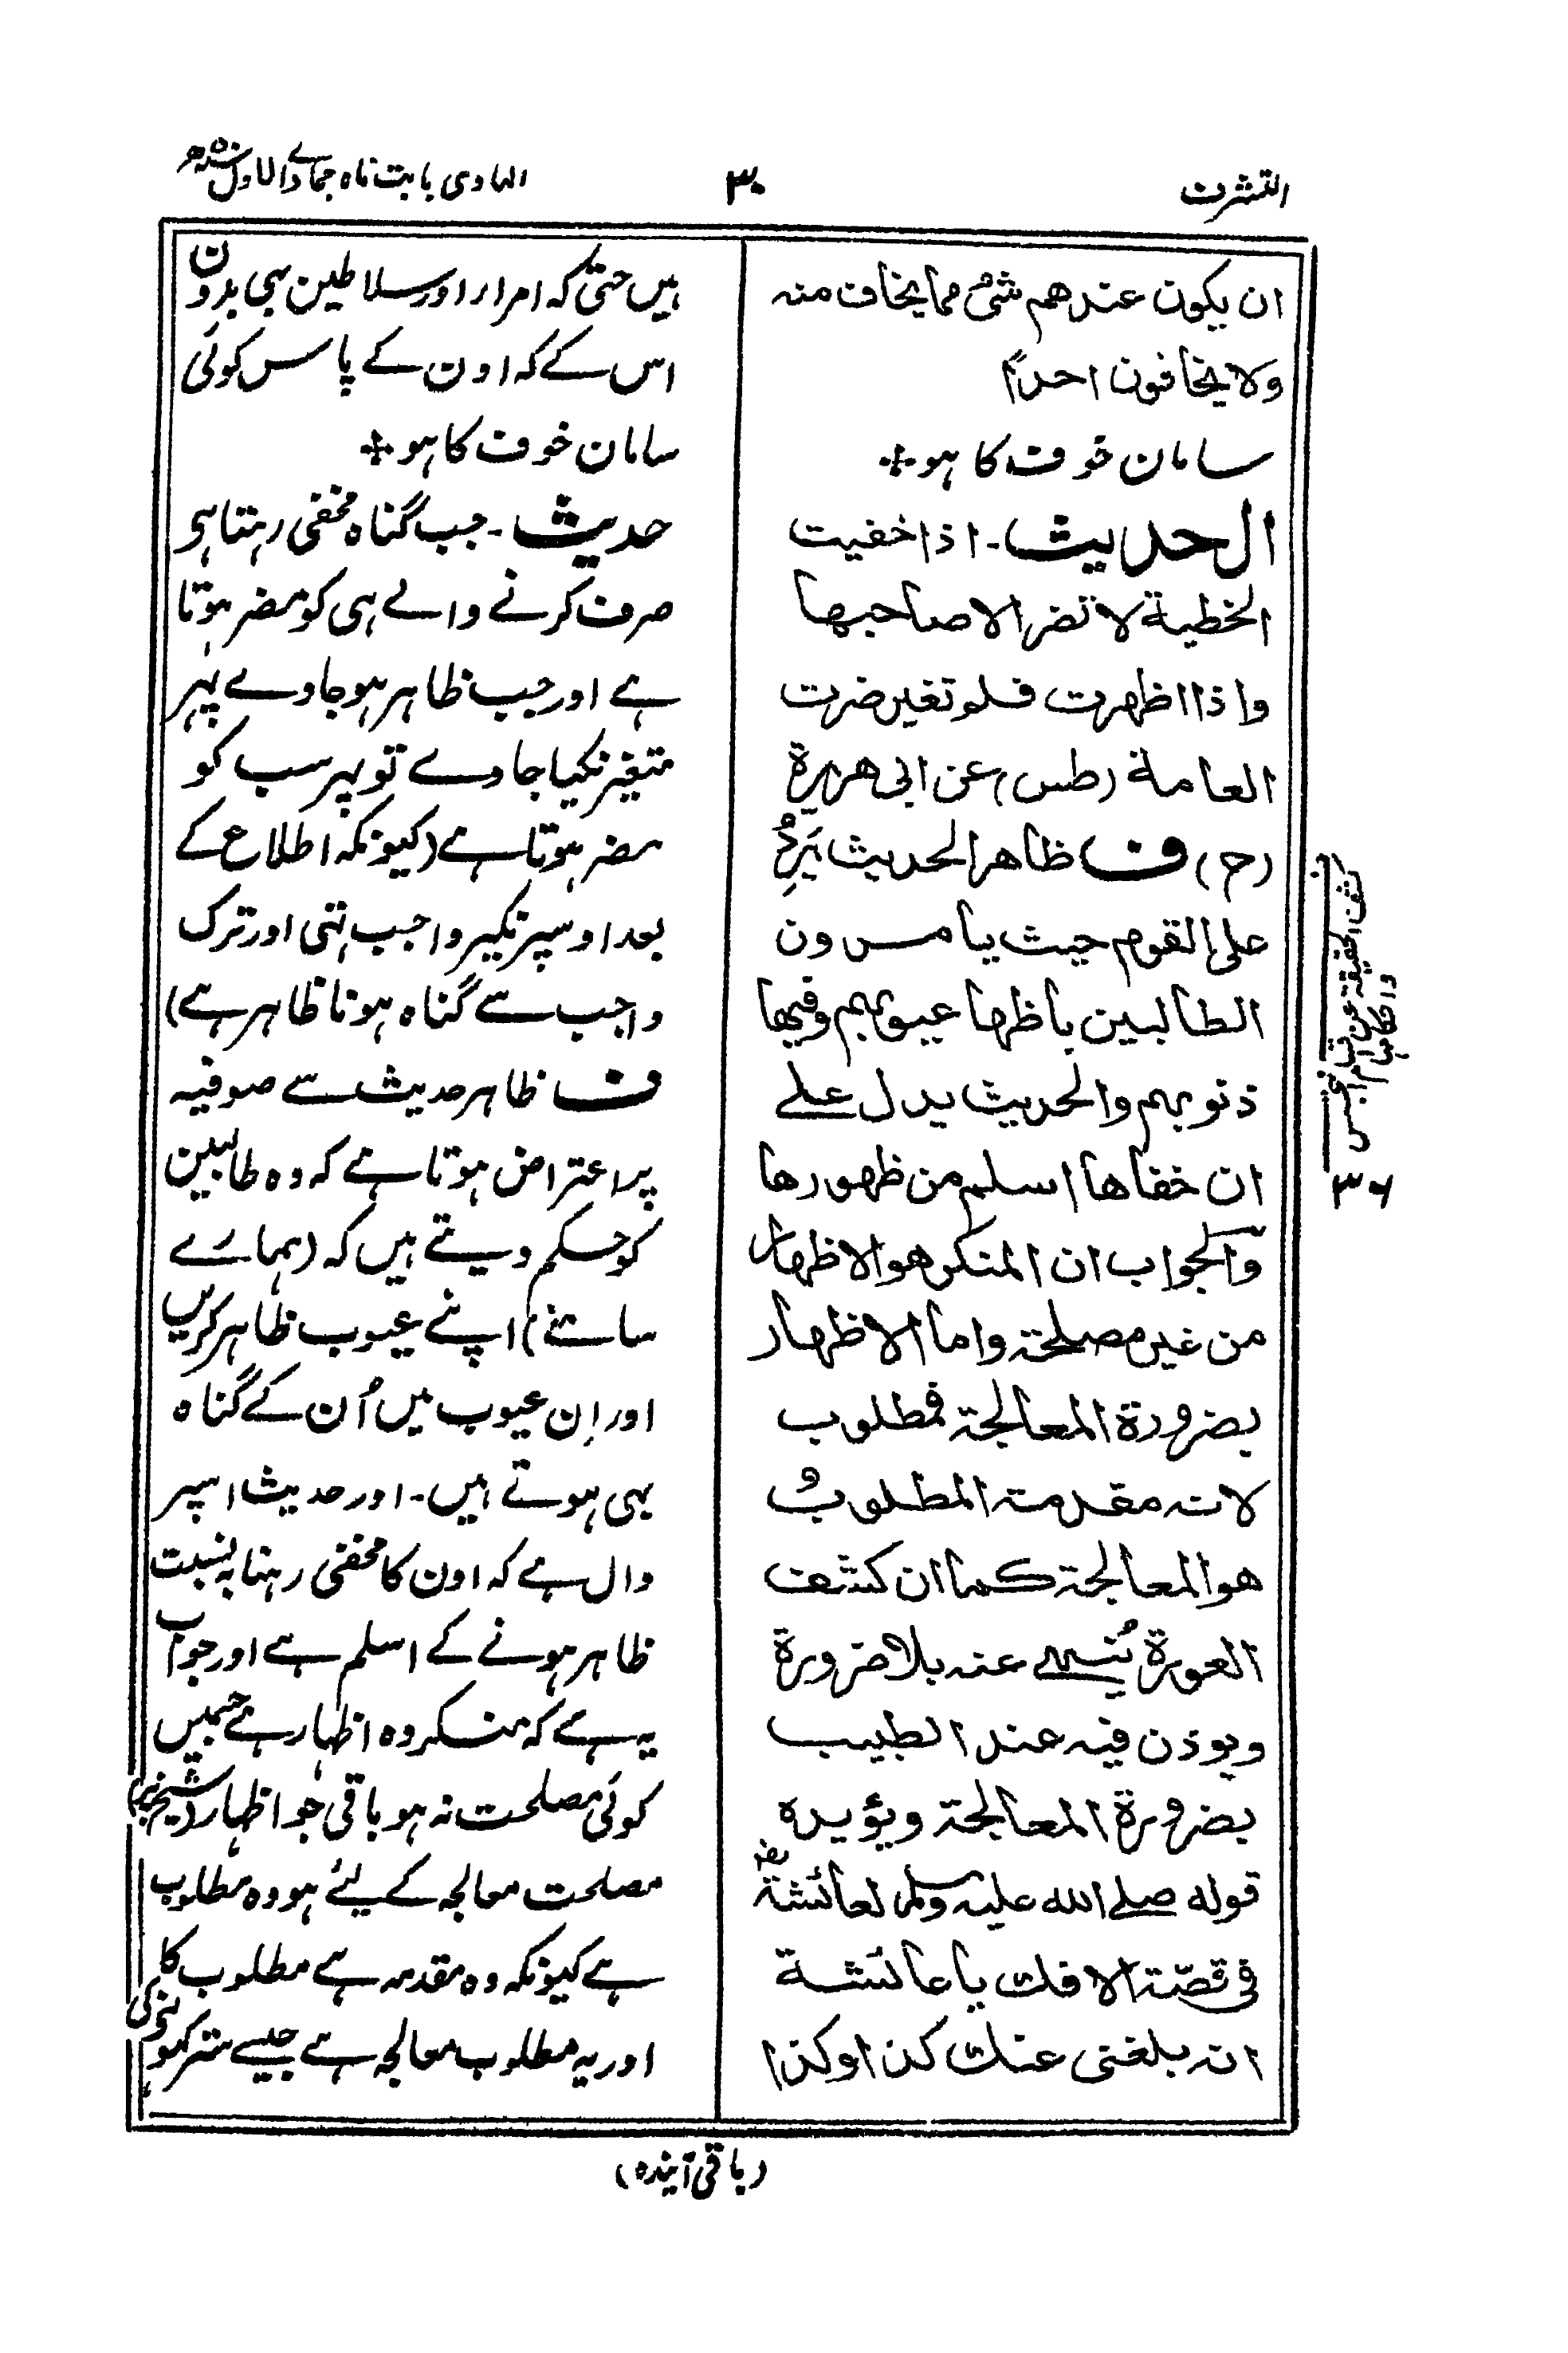 التشرف
۳۰
الہادی بابت ماہ جمادے الاول
ان یکون عندهم شئ مما یخاف منه
ولا یخافون احداً
سامان خوف کا ہو
الحدیث۔ اذا خفیت
الخطیة لا تضر الا صاحبها
واذا اظهرت فلو تغیر ضرت
العامة (طس) عن ابی هریرة
(ح) ف ظاهر الحدیث یَرِدُ
علی القوم حیث یامرون
الطالبین باظهار عیوبهم وفیها
ذنوبهم والحدیث یدل علے
ان خفاها اسلم من ظهورها
والجواب ان المنکر هو الاظهار
من غیر مصلحة واما الاظهار
بضرورة المعالجة فمطلوب
لانه مقدمة المطلوب و
هو المعالجة کما ان کشف
العورة یُنهی عنه بلا ضرورة
ویوذن فیه عند الطبیب
بضرورة المعالجة ویؤیده
قوله صلے الله علیه وسلم لعائشة رض
فی قصّة الافک یا عائشة
انه بلغنی عنک کذا وکذا
ہیں حتیٰ کہ امرا اور سلاطین بھی بدون
اس کے کہ اون کے پاس کوئی
سامان خوف کا ہو
حدیث۔ جب گناہ مخفی رہتا ہی
صرف کرنے والے ہی کو مضر ہوتا
ہے اور جب ظاہر ہوجاوے پہر
متغیر نکیا جاوے تو پہر سب کو
مضر ہوتا ہے (کیونکہ اطلاع کے
بعد اوسپر نکیر واجب تہی اور ترک
واجب سے گناہ ہونا ظاہر ہے)
ف ظاہر حدیث سے صوفیہ
پر اعتراض ہوتا ہے کہ وہ طالبین
کو حکم دیتے ہیں کہ (ہمارے
سامنے) اپنے عیوب ظاہر کریں
اور اِن عیوب میں اُن کے گناہ
بہی ہوتے ہیں۔ اور حدیث اسپر
دال ہے کہ اون کا مخفی رہنا بہ نسبت
ظاہر ہونے کے اسلم ہے اور جواب
یہ ہے کہ منکر وہ اظہار ہے جسمیں
کوئی مصلحت نہ ہو باقی جو اظہار (شیخ پر)
مصلحت معالجہ کے لیئے ہو وہ مطلوب
ہے کیونکہ وہ مقدمہ ہے مطلوب کا
اور یہ مطلوب معالجہ ہے جیسے ستر کہولنے کی
۳۶
(باقی آیندہ)